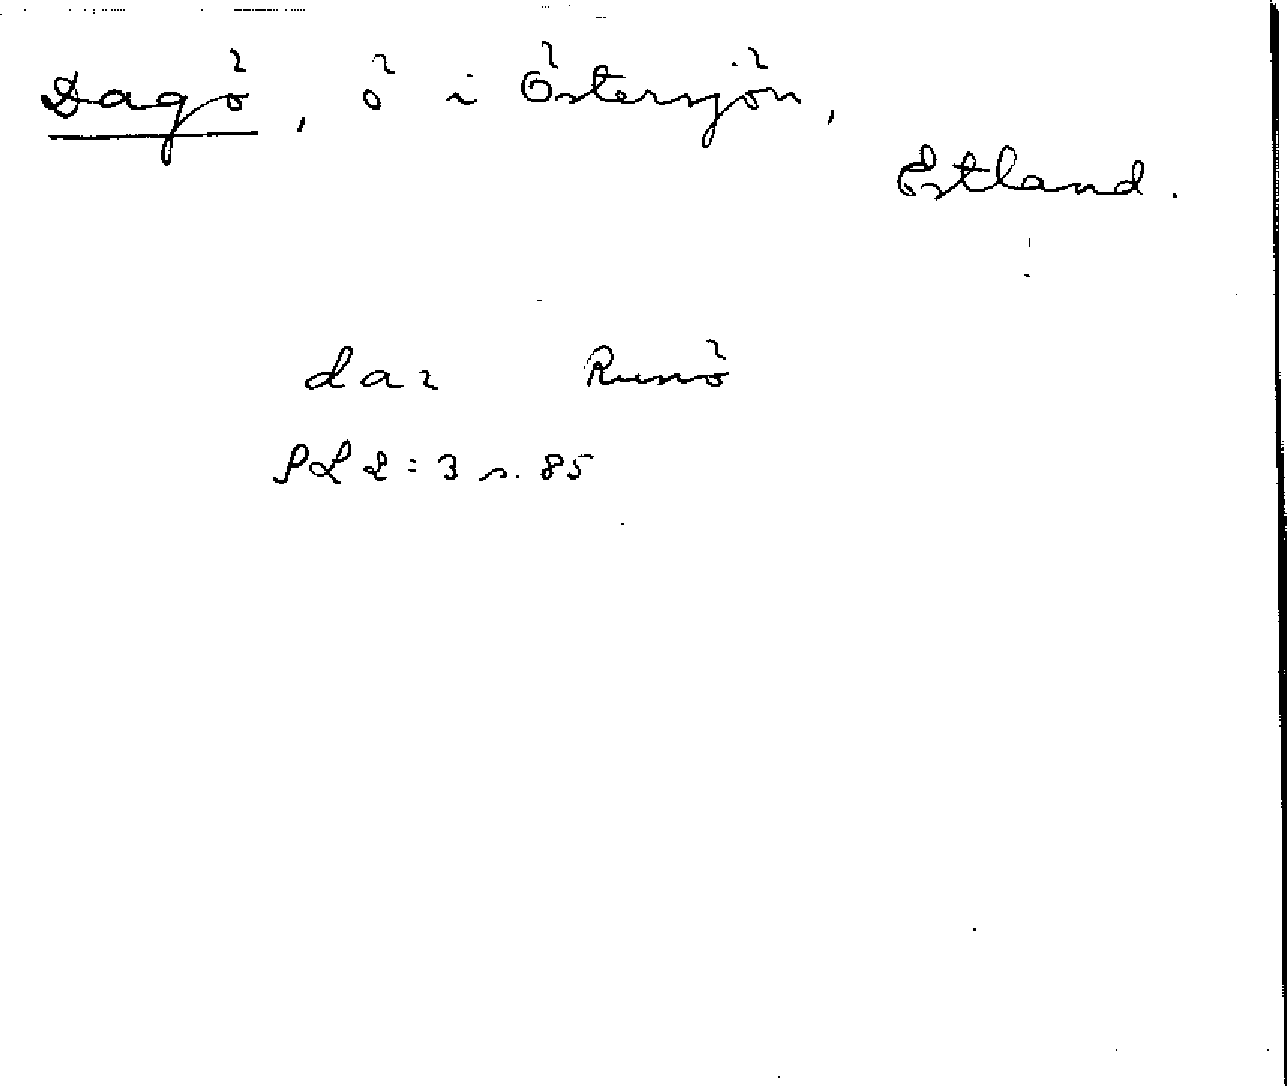 Dagö, ö i Östersjön,
Estland.
daz Runö
PL 2:3 s. 85